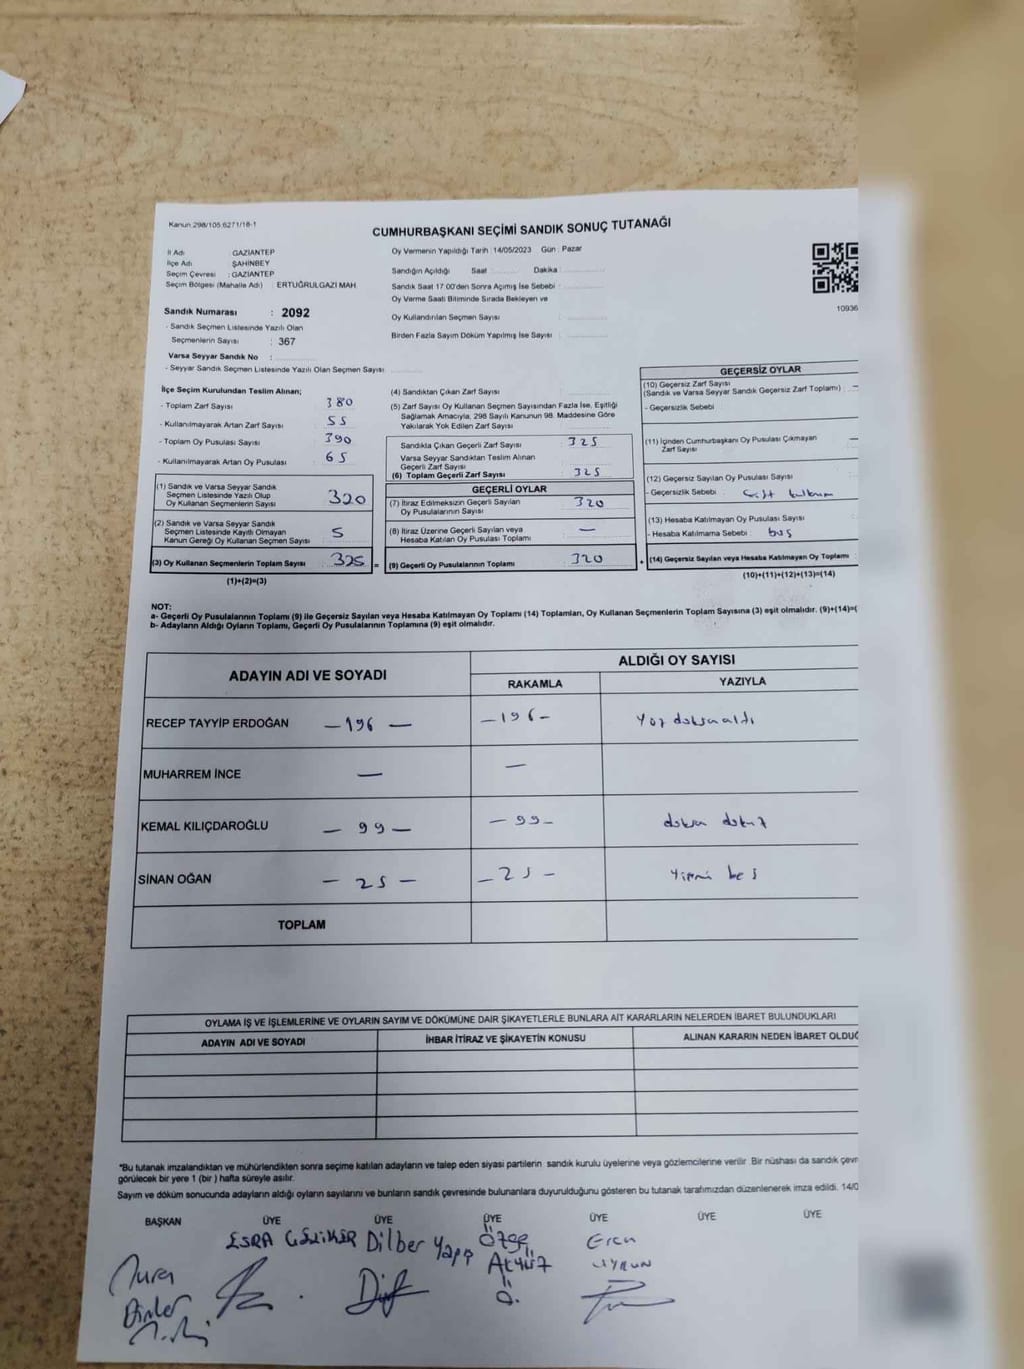 Kanun:298/105:6271/18-1
CUMHURBAŞKANI SEÇİMİ SANDIK SONUÇ TUTANAĞI
İl Adı GAZİANTEP
İlçe Adı ŞAHİNBEY
Seçim Çevresi : GAZİANTEP
Seçim Bölgesi (Mahalle Adı) : ERTUĞRULGAZİ MAH.
Oy Vermenin Yapıldığı Tarih :14/05/2023 Gün : Pazar
Sandığın Açıldığı Saat Dakika
Sandık Saat 17:00'den Sonra Açımış İse Sebebi :
Oy Verme Saati Bitiminde Sırada Bekleyen ve
Oy Kullandırılan Seçmen Sayısı :
Birden Fazla Sayım Döküm Yapılmış İse Sayısı :
10936
Sandık Numarası : 2092
- Sandık Seçmen Listesinde Yazılı Olan
Seçmenlerin Sayısı : 367
Varsa Seyyar Sandık No :
- Seyyar Sandık Seçmen Listesinde Yazılı Olan Seçmen Sayısı :
İlçe Seçim Kurulundan Teslim Alınan;
- Toplam Zarf Sayısı 380
- Kullanılmayarak Artan Zarf Sayısı 55
- Toplam Oy Pusulası Sayısı 390
- Kullanılmayarak Artan Oy Pusulası 65
(1) Sandık ve Varsa Seyyar Sandık
Seçmen Listesinde Yazılı Olup
Oy Kullanan Seçmenlerin Sayısı 320
(2) Sandık ve Varsa Seyyar Sandık
Seçmen Listesinde Kayıtlı Olmayan
Kanun Gereği Oy Kullanan Seçmen Sayısı 5
(3) Oy Kullanan Seçmenlerin Toplam Sayısı 325 =
(1)+(2)=(3)
(4) Sandıktan Çıkan Zarf Sayısı
(5) Zarf Sayısı Oy Kullanan Seçmen Sayısından Fazla İse, Eşitliği
Sağlamak Amacıyla, 298 Sayılı Kanunun 98. Maddesine Göre
Yakılarak Yok Edilen Zarf Sayısı
Sandıkla Çıkan Geçerli Zarf Sayısı 325
Varsa Seyyar Sandıktan Teslim Alınan
Geçerli Zarf Sayısı
(6) Toplam Geçerli Zarf Sayısı 325
GEÇERLİ OYLAR
(7) İtiraz Edilmeksizin Geçerli Sayılan
Oy Pusulalarının Sayısı 320
(8) İtiraz Üzerine Geçerli Sayılan veya
Hesaba Katılan Oy Pusulası Toplamı —
(9) Geçerli Oy Pusulalarının Toplamı 320 +
GEÇERSİZ OYLAR
(10) Geçersiz Zarf Sayısı
(Sandık ve Varsa Seyyar Sandık Geçersiz Zarf Toplamı) : —
- Geçersizlik Sebebi
(11) İçinden Cumhurbaşkanı Oy Pusulası Çıkmayan
Zarf Sayısı —
(12) Geçersiz Sayılan Oy Pusulası Sayısı
- Geçersizlik Sebebi : çift
(13) Hesaba Katılmayan Oy Pusulası Sayısı
- Hesaba Katılmama Sebebi : boş
(14) Geçersiz Sayılan veya Hesaba Katılmayan Oy Toplamı
(10)+(11)+(12)+(13)=(14)
NOT:
a- Geçerli Oy Pusulalarının Toplamı (9) ile Geçersiz Sayılan veya Hesaba Katılmayan Oy Toplamı (14) Toplamları, Oy Kullanan Seçmenlerin Toplam Sayısına (3) eşit olmalıdır. (9)+(14)=(
b- Adayların Aldığı Oyların Toplamı, Geçerli Oy Pusulalarının Toplamına (9) eşit olmalıdır.
ADAYIN ADI VE SOYADI ALDIĞI OY SAYISI
RAKAMLA YAZIYLA
RECEP TAYYİP ERDOĞAN — 196 — — 196 — Yüz doksan altı
MUHARREM İNCE — —
KEMAL KILIÇDAROĞLU — 99 — — 99 — doksan dokuz
SİNAN OĞAN — 25 — — 25 — Yirmi beş
TOPLAM
OYLAMA İŞ VE İŞLEMLERİNE VE OYLARIN SAYIM VE DÖKÜMÜNE DAİR ŞİKAYETLERLE BUNLARA AİT KARARLARIN NELERDEN İBARET BULUNDUKLARI
ADAYIN ADI VE SOYADI İHBAR İTİRAZ VE ŞİKAYETİN KONUSU ALINAN KARARIN NEDEN İBARET OLDUĞ
*Bu tutanak imzalandıktan ve mühürlendikten sonra seçime katılan adayların ve talep eden siyasi partilerin sandık kurulu üyelerine veya gözlemcilerine verilir. Bir nüshası da sandık çevr
görülecek bir yere 1 (bir ) hafta süreyle asılır.
Sayım ve döküm sonucunda adayların aldığı oyların sayılarını ve bunların sandık çevresinde bulunanlara duyurulduğunu gösteren bu tutanak tarafımızdan düzenlenerek imza edildi. 14/0
BAŞKAN ÜYE ÜYE ÜYE ÜYE ÜYE ÜYE
ESRA ÇELİKER Dilber Yapı Özge Eren
Akyüz UYGUN